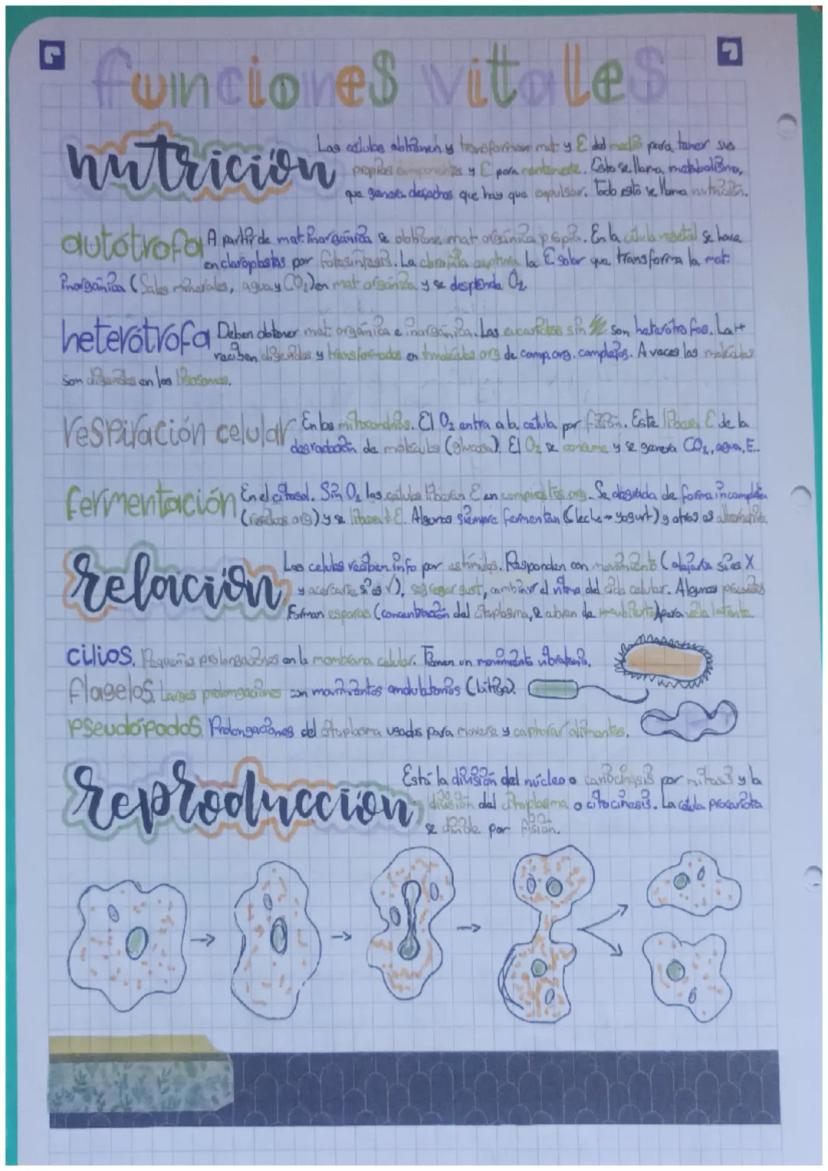 funciones vitales
nutrición
Las células obtienen y transforman mat y E del medio para tener sus
propios componentes y E para mantenerse. Esto se llama, metabolismo,
que genera desechos que hay que expulsar. Todo esto se llama nutrición.
autótrofa A partir de mat inorgánica se obtiene mat orgánica propia. En la célula vegetal se hace
en cloroplastos por fotosíntesis. La clorofila captura la E solar que transforma la mat.
inorgánica (Sales minerales, agua y CO₂) en mat orgánica y se desprende O₂.
heterótrofa Deben obtener mat orgánica e inorgánica. Las eucariotas sin son heterótrofas. La
reciben digeridos y transformados en moléculas org de comp. org. complejos. A veces las moléculas
son digeridas en los lisosomas.
respiración celular En las mitocondrias. El O₂ entra a la célula por difusión. Este libera E de la
degradación de moléculas (glucosa). El O₂ se consume y se genera CO₂, agua, E.
fermentación En el citosol. Sin O₂ las células liberan E en compuestos org. Se degrada de forma incompleta
(residuos org) y se libera E. Algunas siempre fermentan (leche → yogurt) y otras as
relación
Las celulas reciben info por estímulos. Responden con movimiento (alejarse si es X
y acercarse si es √), segregar sust, cambiar el ritmo del ciclo celular. Algunos
forman esporas (concentración del citoplasma, se abren de para vida latente
cilios. Pequeñas prolongaciones en la membrana celular. Tienen un movimiento vibratorio.
flagelos. Largas prolongaciones con movimientos ondulatorios (látigo).
pseudópodos. Prolongaciones del citoplasma usados para moverse y capturar alimentos.
reproducción
Está la división del núcleo o cariocinesis por mitosis y la
división del citoplasma o citocinesis. La célula procariota
se divide por fisión.